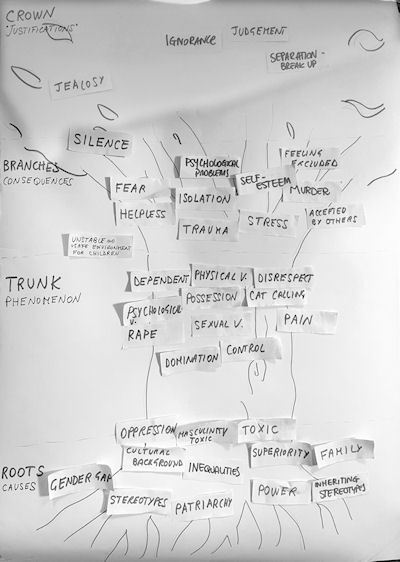 CROWN
"JUSTIFICATIONS"
IGNORANCE
JUDGEMENT
SEPARATION -
BREAK UP
JEALOSY
SILENCE
BRANCHES
CONSEQUENCES
PSYCHOLOGICAL
PROBLEMS
FEELING
EXCLUDED
FEAR
ISOLATION
SELF-
ESTEEM
MURDER
HELPLESS
TRAUMA
STRESS
ACCEPTED
BY OTHERS
UNSTABLE
ENVIRONMENT
FOR CHILDREN
TRUNK
PHENOMENON
DEPENDENT
PHYSICAL V.
DISRESPECT
PSYCHOLOGICAL
V.
POSSESSION
CAT CALLING
RAPE
SEXUAL V.
PAIN
DOMINATION
CONTROL
OPPRESSION
MASCULINITY
TOXIC
TOXIC
ROOTS
CAUSES
CULTURAL
BACKGROUND
INEQUALITIES
SUPERIORITY
FAMILY
GENDER GAP
STEREOTYPES
PATRIARCHY
POWER
INHERITING
STEREOTYPES